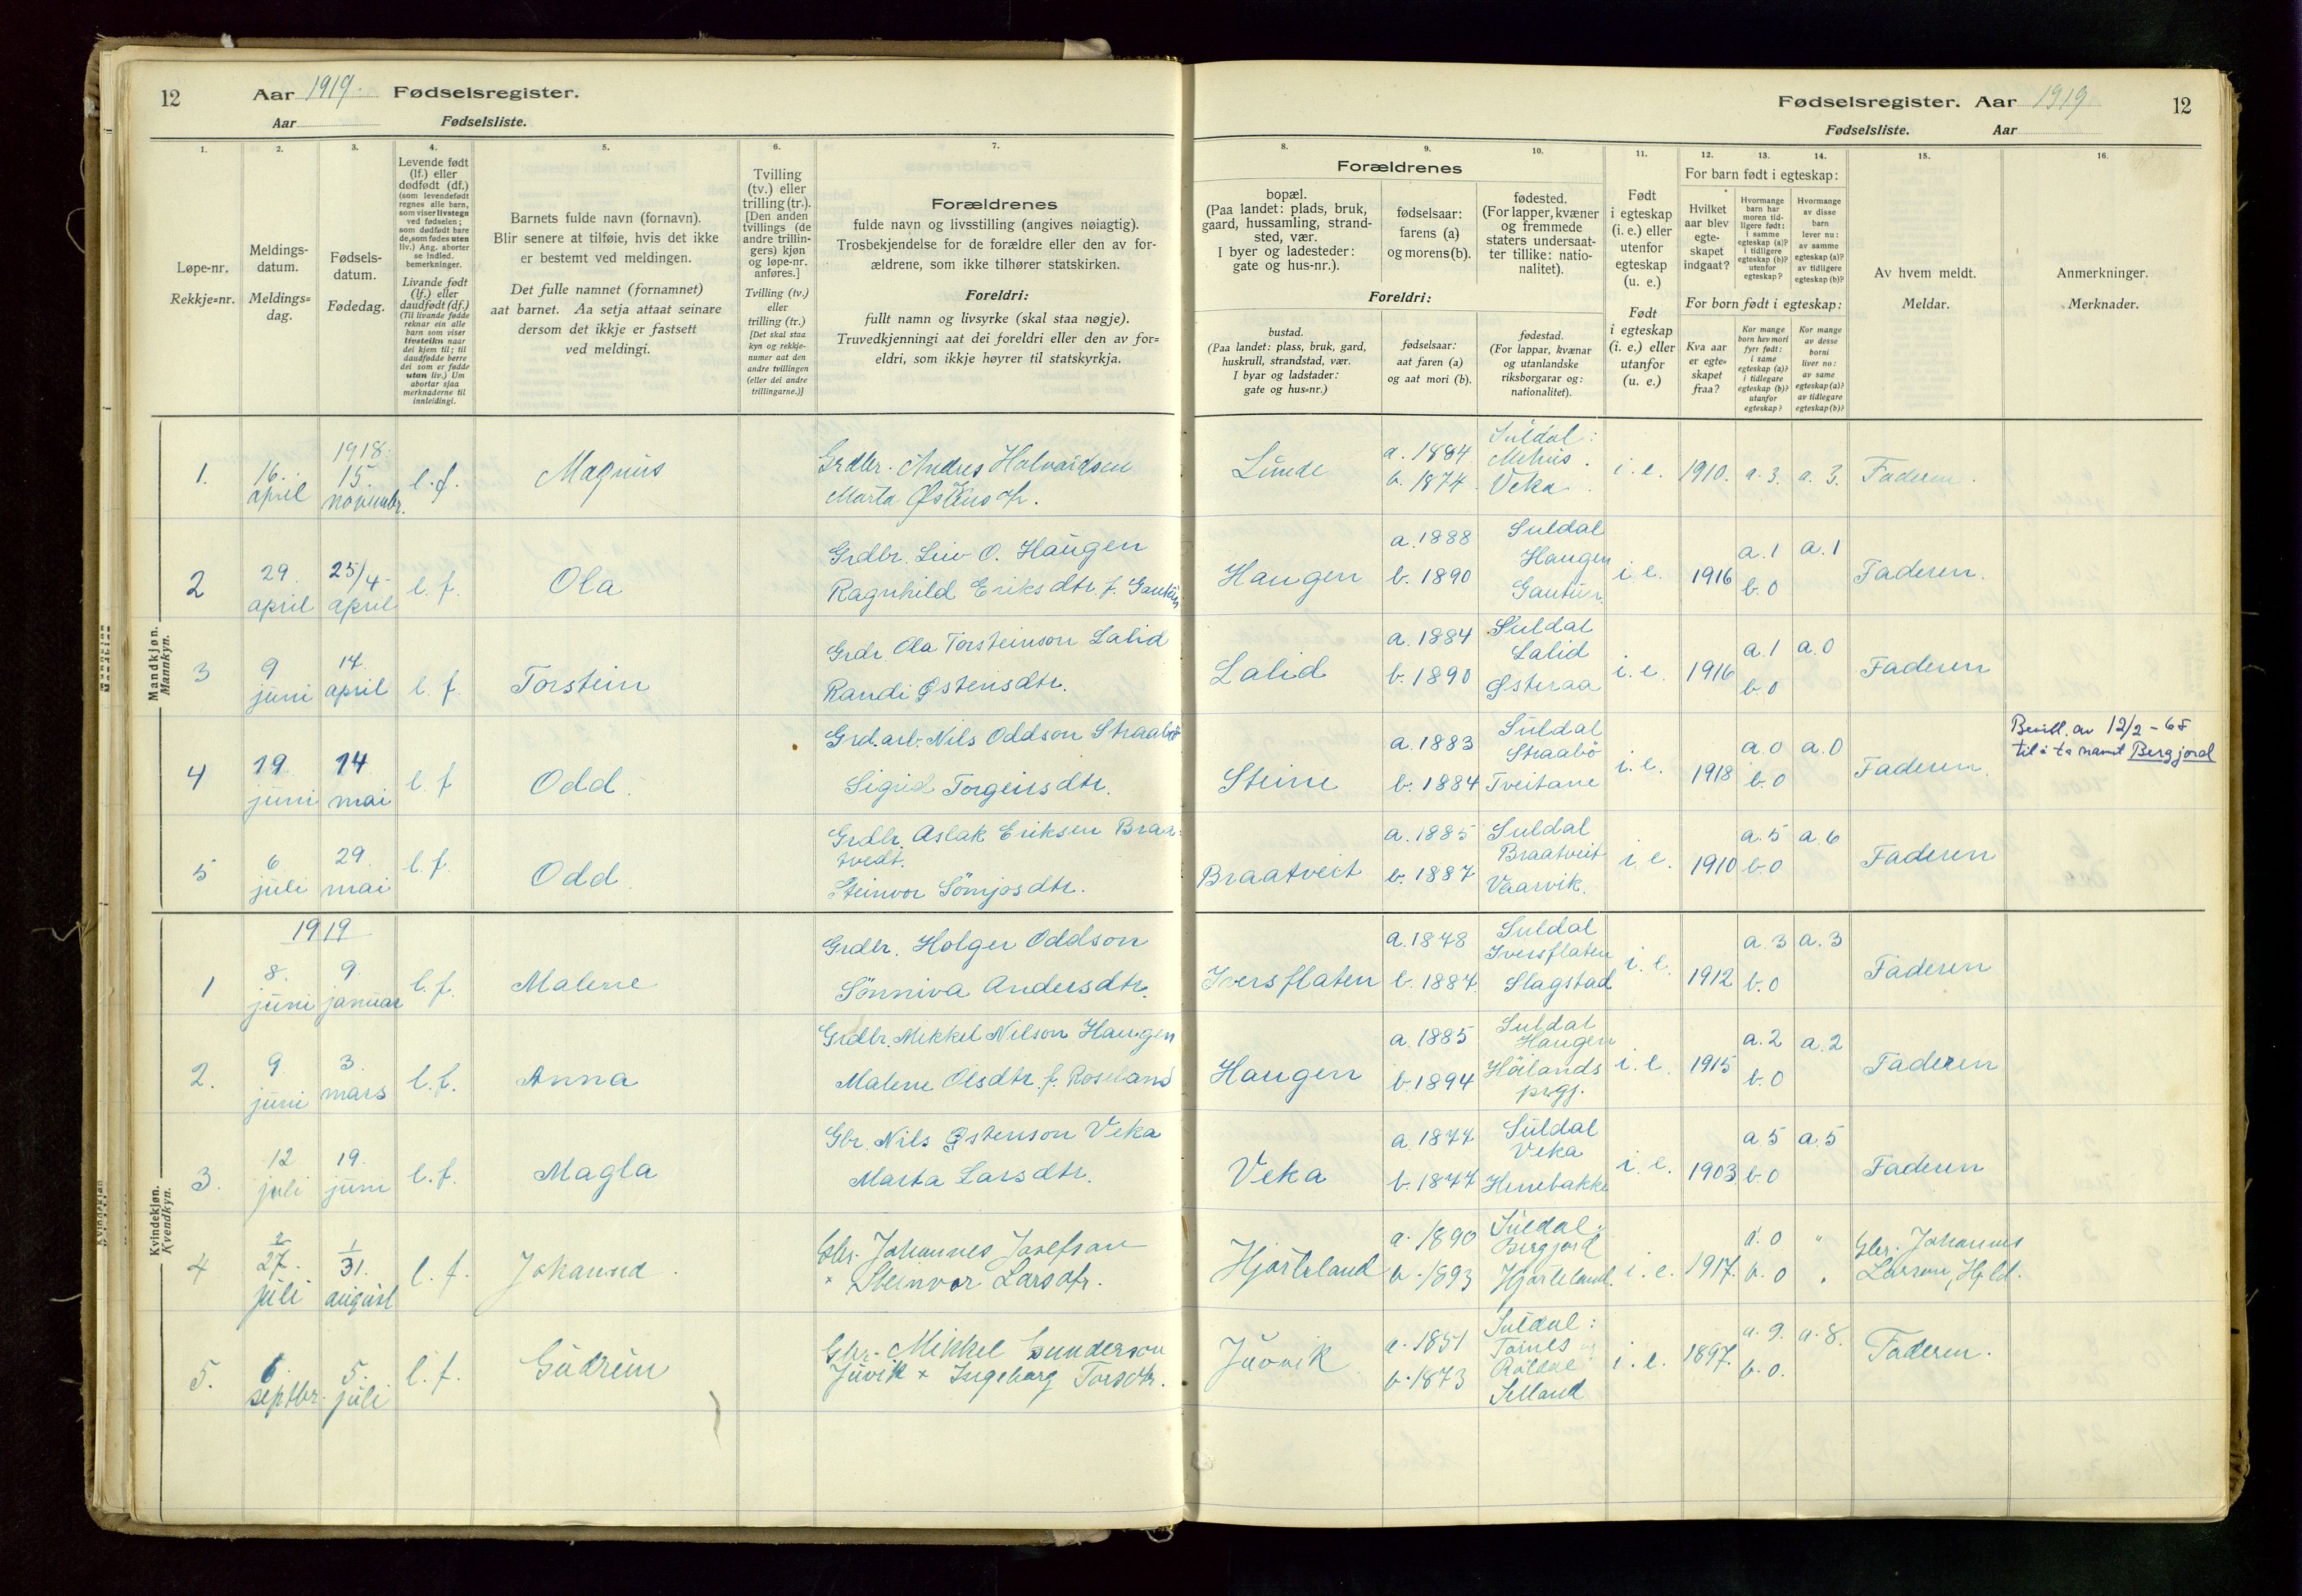 12 Aar 1919. Fødselsregister.
Aar Fødselsliste.
Fødselsregister. Aar 1919 12
Fødselsliste. Aar
1.
Løpe-nr.
Rekkje=nr.
2.
Meldings-
datum.
Meldings=
dag.
3.
Fødsels-
datum.
Fødedag.
4.
Levende født
(lf.) eller
dødfødt (df.)
(som levendefødt
regnes alle barn,
som viser livstegn
ved fødselen;
som dødfødt bare
de, som fødes uten
liv.) Ang. aborter
se indled.
bemerkninger.
Livande født
(lf.) eller
daudfødt (df.)
(Til livande fødde
reknar ein alle
barn som viser
livsteikn naar
dei kjem til; til
daudfødde berre
dei som er fødde
utan liv.) Um
abortar sjaa
merknaderne til
innleidingi.
5.
Barnets fulde navn (fornavn).
Blir senere at tilføie, hvis det ikke
er bestemt ved meldingen.
Det fulle namnet (fornamnet)
aat barnet. Aa setja attaat seinare
dersom det ikkje er fastsett
ved meldingi.
6.
Tvilling
(tv.) eller
trilling (tr.).
[Den anden
tvillings (de
andre trillin-
gers) kjøn
og løpe-nr.
anføres.]
Tvilling (tv.)
eller
trilling (tr.)
[Det skal staa
kyn og rekkje-
numer aat den
andre tvillingen
(eller dei andre
trillingarne.)]
7.
Forældrenes
fulde navn og livsstilling (angives nøiagtig).
Trosbekjendelse for de forældre eller den av for-
ældrene, som ikke tilhører statskirken.
Foreldri:
fullt namn og livsyrke (skal staa nøgje).
Truvedkjenningi aat dei foreldri eller den av for=
eldri, som ikkje høyrer til statskyrkja.
Forældrenes
8.
bopæl.
(Paa landet: plads, bruk,
gaard, hussamling, strand-
sted, vær.
I byer og ladesteder:
gate og hus-nr.).
9.
fødselsaar:
farens (a)
og morens (b).
10.
fødested.
(For lapper, kvæner
og fremmede
staters undersaat-
ter tillike: natio-
nalitet).
Foreldri:
bustad.
(Paa landet: plass, bruk, gard,
huskrull, strandstad, vær.
I byar og ladstader:
gate og hus=nr.)
fødselsaar:
aat faren (a)
og aat mori (b).
fødestad.
(For lappar, kvænar
og utanlandske
riksborgarar og:
nationalitet).
11.
Født
i egteskap
(i. e.) eller
utenfor
egteskap
(u. e.)
Født
i egteskap
(i. e.) eller
utanfor
(u. e.)
12. 13. 14.
For barn født i egteskap:
Hvilket
aar blev
egte-
skapet
indgaat?
Hvormange
barn har
moren tid-
ligere født:
i samme
egteskap (a)?
i tidligere
egteskap (b)?
utenfor
egteskap?
Hvormange
av disse
barn
lever nu:
av samme
egteskap (a)?
av tidligere
egteskap (b)?
For born født i egteskap:
Kva aar
er egte=
skapet
fraa?
Kor mange
born hev mori
fyrr født:
i same
egteskap (a)?
i tidlegare
egteskap (b)?
utanfor
egteskap?
Kor mange
av desse
borni
liver no:
av same
egteskap (a)?
av tidlegare
egteskap (b)?
15.
Av hvem meldt.
Meldar.
16.
Anmerkninger.
Merknader.
Mandkjøn.
Mannkyn.
1. 16. april 1918. 15. novembr. l. f. Magnus
Grdbr. Andres Halvardsen
Marta Østensdtr.
Lunde a. 1884 b. 1874. Suldal: Mehus. Veka. i. e. 1910. a. 3. a. 3. Faderen.
2 29. april 25/4- april l. f. Ola
Grdbr. Liv O. Haugen
Ragnhild Eriksdtr. f. Gautun
Haugen a. 1888 b. 1890 Suldal Haugen Gautun. i. e. 1916 a. 1 b. 0 a. 1 Faderen.
3 9 juni 14. april l. f. Torstein
Grdr. Ola Torsteinson Lalid
Randi Østensdtr.
Lalid a. 1884 b. 1890 Suldal Lalid Østeraa i. e. 1916 a. 1 b. 0 a. 0 Faderen
4 19. juni 14 mai l. f Odd.
Grd.arb. Nils Oddson Straabø
Sigrid Torgeirsdtr.
Steine a. 1883 b. 1884 Suldal Straabö Tveitane i. e. 1918 a. 0 b. 0 a. 0 Faderen.
Bevill. av 12/2 - 65
til å ta namnet Bergjord
5 6 juli 29. mai l. f. Odd.
Grdbr. Aslak Eriksen Braa-
tvedt.
Steinvor Sömjosdtr.
Braatveit a. 1885 b. 1887 Suldal Braatveit Vaarvik. i. e. 1910 a. 5 b. 0 a. 6 Faderen
Kvindekjøn.
Kvendkyn.
1919
1 8. juni 9. januar l. f. Malene
Grdbr. Holger Oddson
Sönniva Andersdtr.
Iversflaten a. 1878 b. 1887. Suldal Iversflaten Slagstad i. e. 1912 a. 3 b. 0 a. 3 Faderen
2. 9. juni 3. mars l. f. Anna
Grdbr. Mikkel Nilson Haugen
Malene Olsdtr. f. Roseland
Haugen a. 1885 b. 1894 Suldal Haugen Höilands prgj. i. e. 1915 a. 2 b. 0 a. 2 Faderen
3. 12 juli 19. juni l. f. Magla
Gbr. Nils Østenson Veka
Marta Larsdtr.
Veka a. 1877 b. 1877 Suldal Veka Herrebakke i. e. 1903 a. 5 b. 0 a. 5 Faderen
4 2 27. juli 1 31. august l. f. Johanna.
Gbr. Johannes Josefson
× Steinvor Larsdtr.
Hjorteland a. 1890 b. 1893 Suldal: Bergjord Hjorteland. i. e. 1917. a. 0 b. 0 " Gbr. Johannes
Larson Hjld.
5. 6. septbr. 5. juli l. f. Gudrun
Gbr. Mikkel Gunderson
Juvik × Ingeborg Torsdtr.
Juvik a. 1851 b. 1873 Suldal: Tornes Röldal Selland i. e. 1897. a. 9. b. 0. a. 8. Faderen.